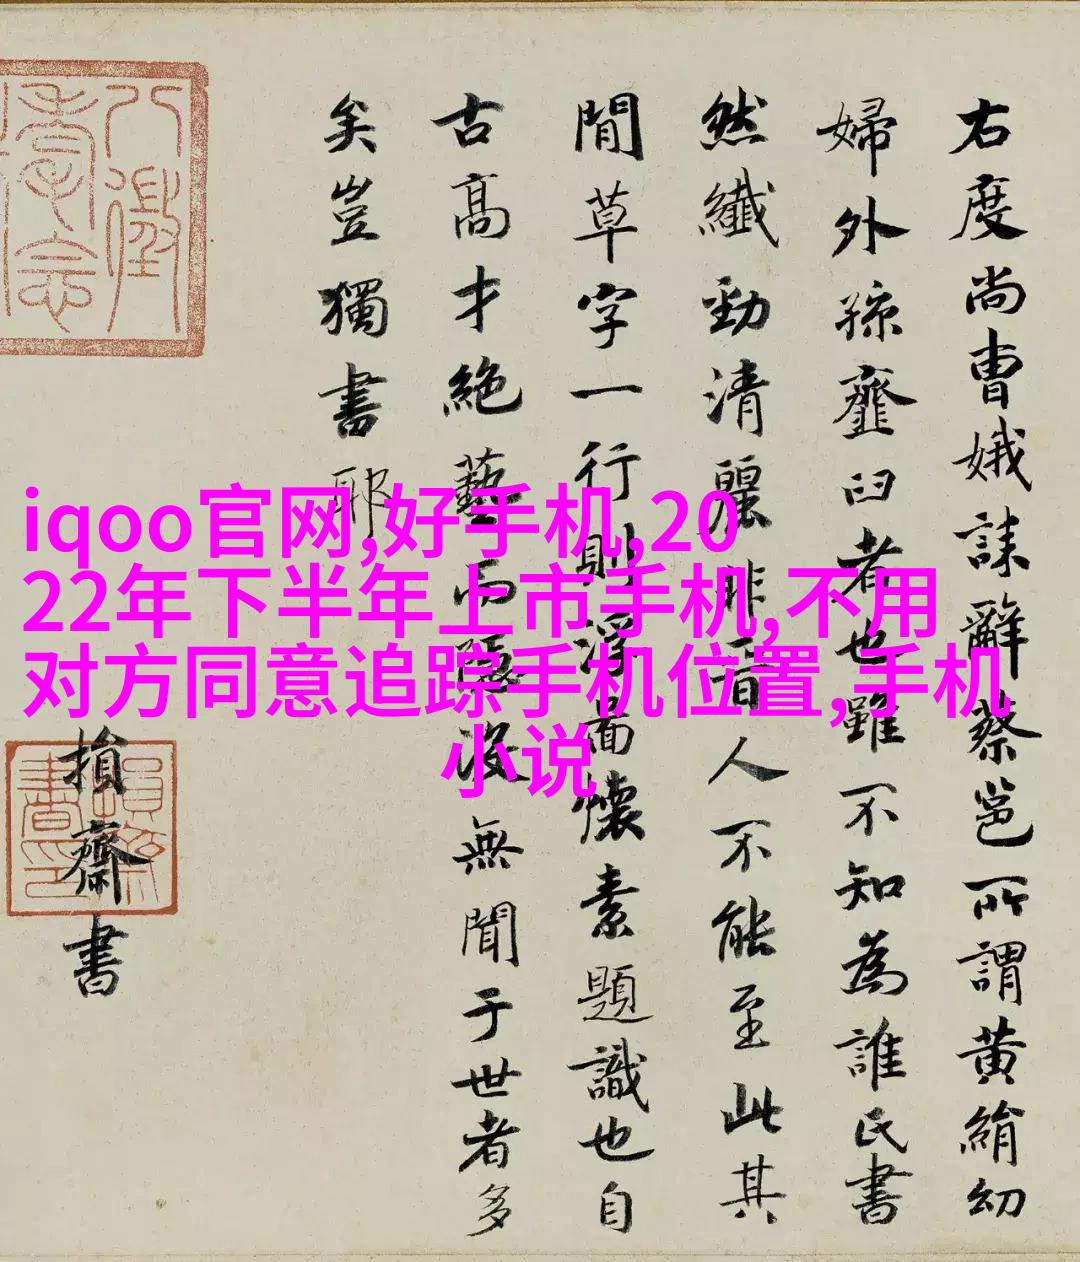 右度尚曹娥誄辭蔡邕所謂黄絹幼
婦外孫齏臼者也雖不知為誰氏書
然纖勁清麗非晉人不能至此其
閒草字一行則浮圖懷素題識也自
古高才絶藝而隱没無聞于世者多
矣豈獨書耶
損齋書
iqoo官网,好手机,20
22年下半年上市手机,不用
对方同意追踪手机位置,手机
小说